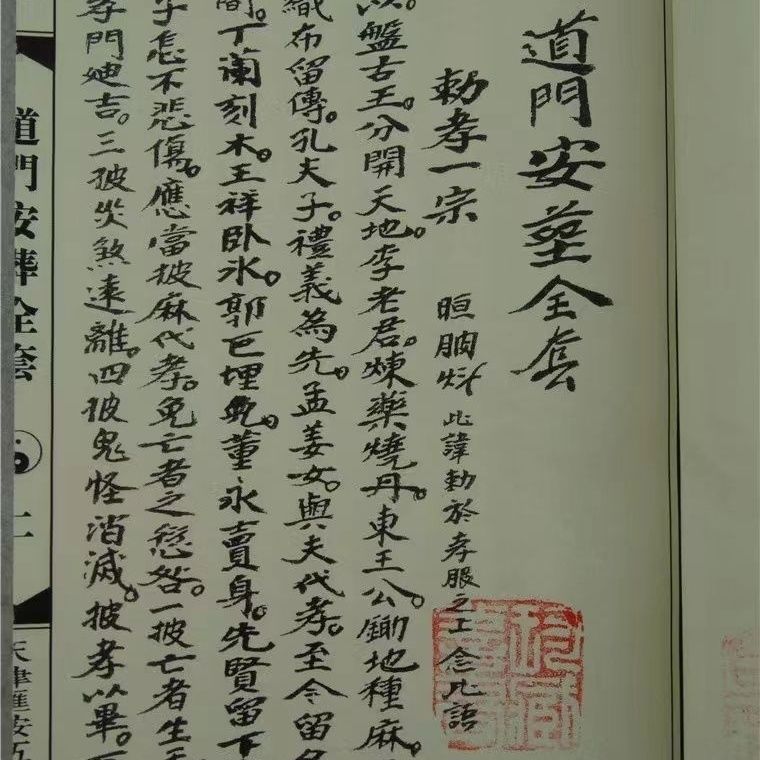 道門安塟全套
勅孝一宗
此諱勅於孝服之上念此語
以盤古王。分開天地。李老君。煉藥燒丹。東王公。鋤地種麻。
織布留傳。孔夫子。禮義為先。孟姜女。與夫代孝。至今留
間。丁蘭刻木。王祥臥氷。郭巨埋兒。董永賣身。先賢留下
子怎不悲傷。應當披麻代孝。免亡者之愆咎。一披亡者生
孝門迪吉。三披災煞遠離。四披鬼怪消滅。披孝以畢。
道門安葬全套
天津匯安五